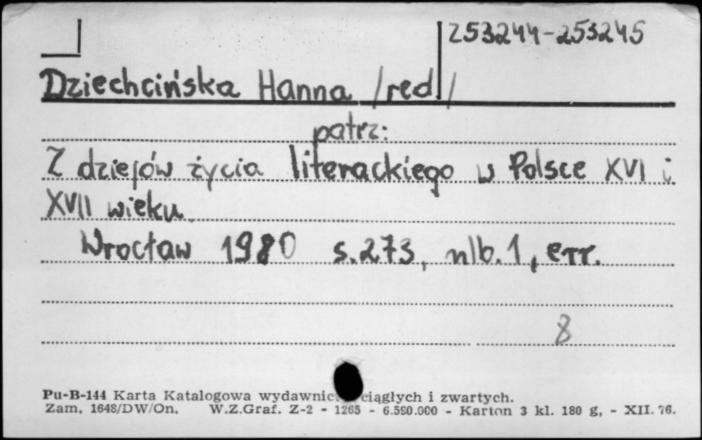 253244-253245
Dziechcińska Hanna /red/
patrz:
Z dziejów życia literackiego w Polsce XVI i
XVII wieku
Wrocław 1980 s.273, nlb.1, err.
8
Pu-B-144 Karta Katalogowa wydawnic ciągłych i zwartych.
Zam. 1648/DW/On. W.Z.Graf. Z-2 - 1265 - 6.580.000 - Karton 3 kl. 180 g, - XII. 76.